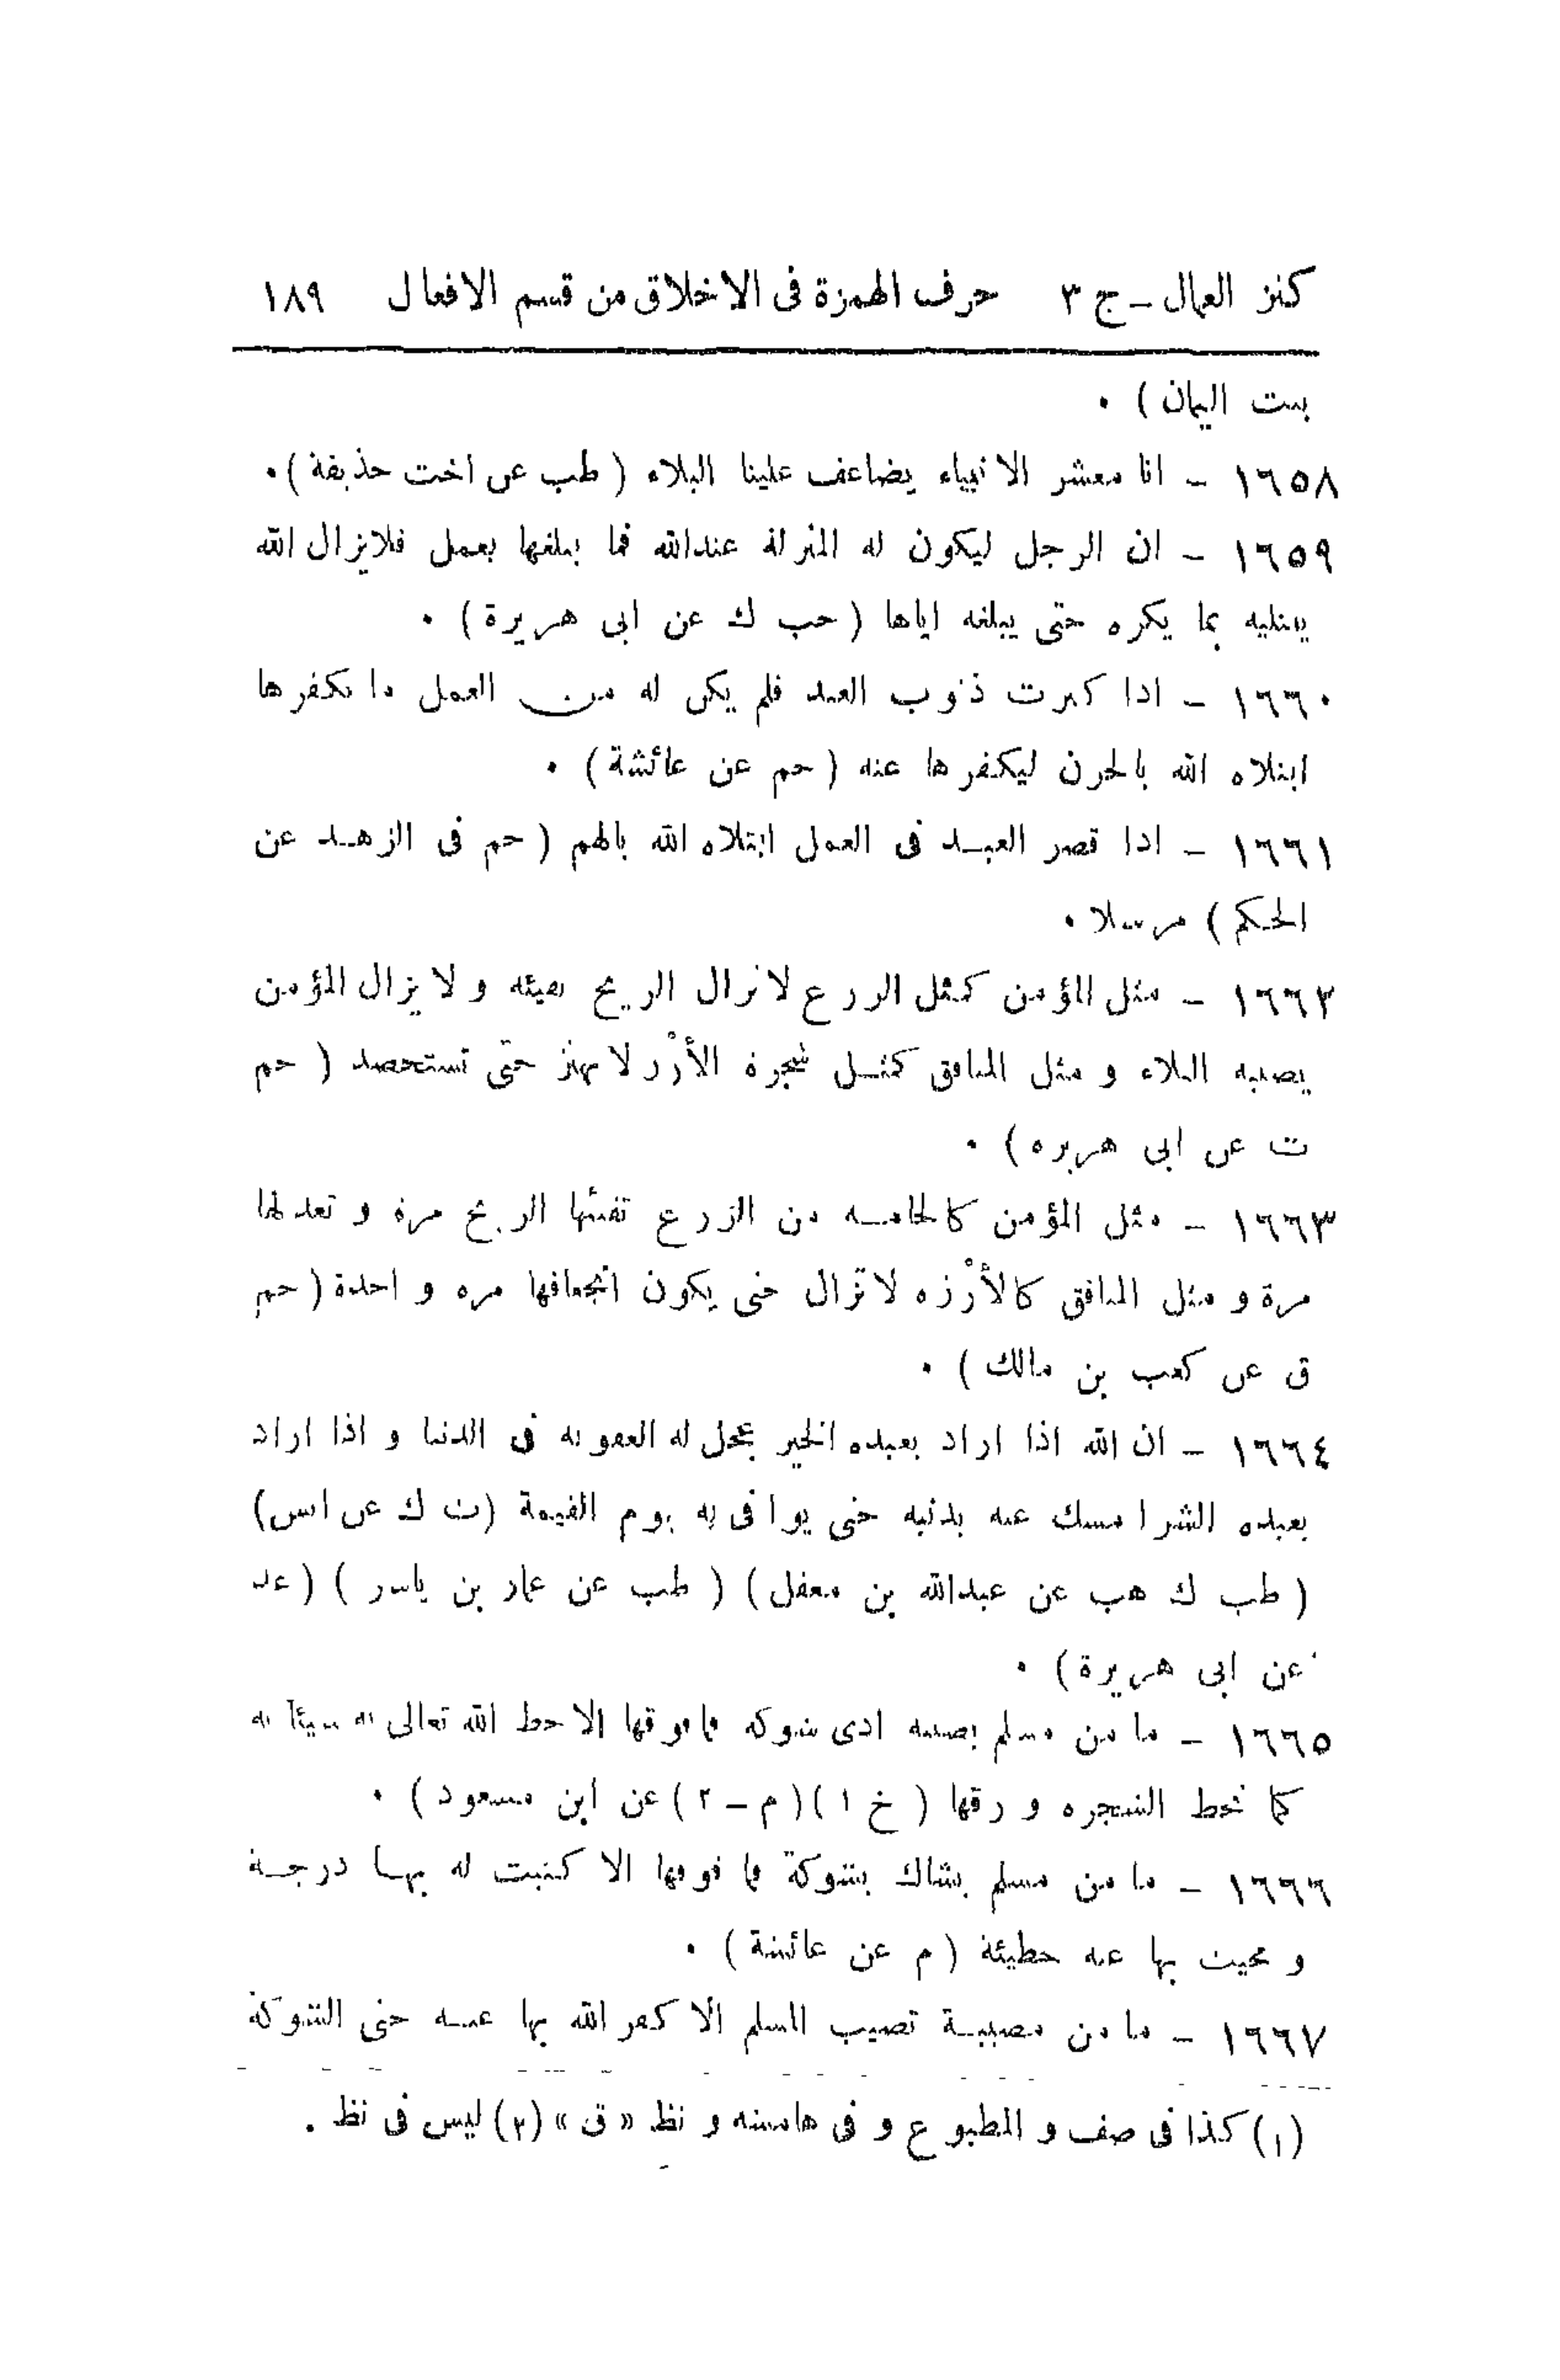 كنز العمال - ج ٣ حرف الهمزة فى الاخلاق من قسم الافعال ١٨٩
بنت اليمان ) ٠
١٦٥٨ - انا معشر الانبياء يضاعف علينا البلاء ( طب عن اخت حذيفة ) ٠
١٦٥٩ - ان الرجل ليكون له المنزلة عندالله فما يبلغها بعمل فلايزال الله
يبتليه بما يكره حتى يبلغه اياها ( حب ك عن ابى هريرة ) ٠
١٦٦٠ - اذا كثرت ذنوب العبد فلم يكن له من العمل ما يكفرها
ابتلاه الله بالحزن ليكفرها عنه ( حم عن عائشة ) ٠
١٦٦١ - اذا قصر العبد فى العمل ابتلاه الله بالهم ( حم فى الزهد عن
الحكم ) مرسلا ٠
١٦٦٢ - مثل المؤمن كمثل الزرع لاتزال الريح تفيئه و لايزال المؤمن
يصيبه البلاء و مثل المنافق كمثل شجرة الأرْز لا تهتز حتى تستحصد ( حم
ت عن ابى هريرة ) ٠
١٦٦٣ - مثل المؤمن كالخامة من الزرع تفيئها الريح مرة و تعدلها
مرة و مثل المنافق كالأرْزة لاتزال حتى يكون انجعافها مرة و احدة ( حم
ق عن كعب بن مالك ) ٠
١٦٦٤ - ان الله اذا اراد بعبده الخير عجل له العقوبة فى الدنيا و اذا اراد
بعبده الشر امسك عنه بذنبه حتى يوافى به يوم القيمة (ت ك عن انس)
( طب ك هب عن عبدالله بن مغفل ) ( طب عن عمار بن ياسر ) ( عد
عن ابى هريرة ) ٠
١٦٦٥ - ما من مسلم يصيبه اذى شوكة فما فوقها الا حط الله تعالى به سيئاته
كما تحط الشجرة و رقها ( خ ١ ) ( م - ٢ ) عن ابن مسعود ) ٠
١٦٦٦ - ما من مسلم يشاك بشوكة فما فوقها الا كتبت له بها درجة
و محيت بها عنه خطيئة ( م عن عائشة ) ٠
١٦٦٧ - ما من مصيبة تصيب المسلم الا كفر الله بها عنه حتى الشوكة
(١) كذا فى صف و المطبوع و فى هامشه و نظ « ق » (٢) ليس فى نظ .